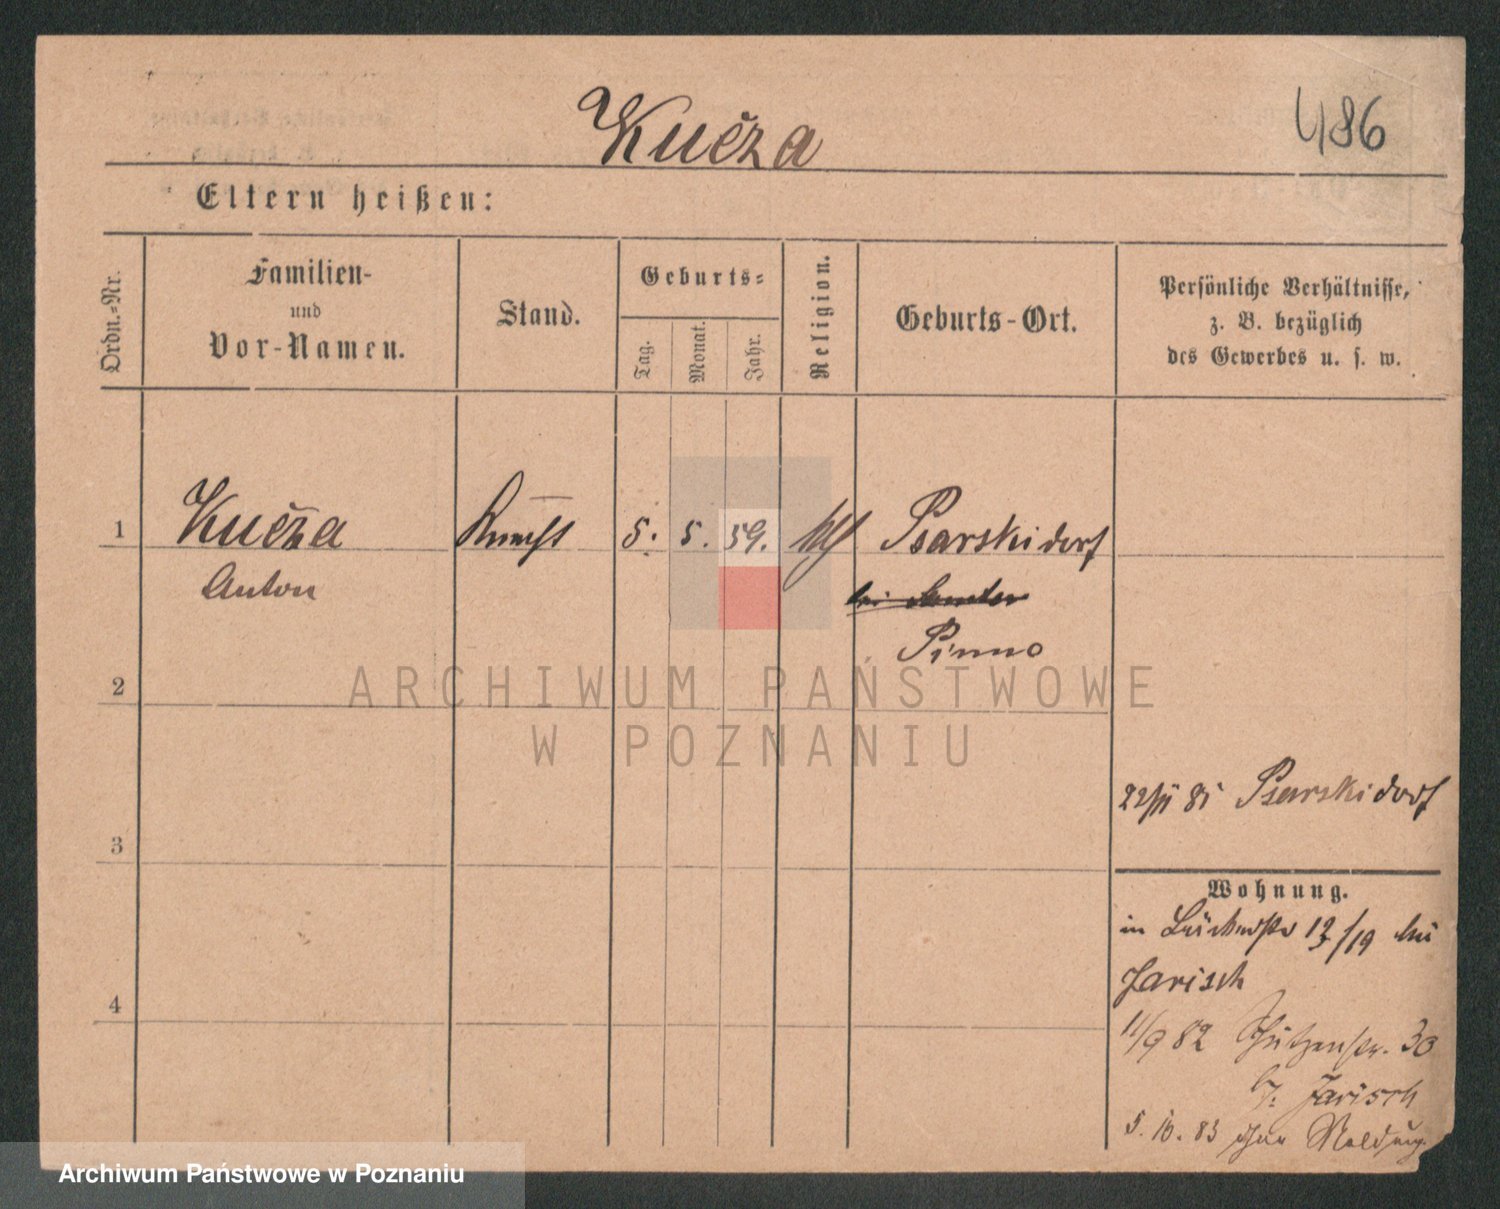 Kučza
486
Eltern heißen:
Ordn.-Nr.
Familien-
und
Vor-Namen.
Stand.
Geburts-
Tag.
Monat.
Jahr.
Religion.
Geburts-Ort.
Persönliche Verhältnisse,
z. B. bezüglich
des Gewerbes u. s. w.
1
Kučza Knecht 5. 5. 59. kth Psarskidorf
Anton
bei Samter
Pinne
2
3
4
22/11 81 Psarskidorf
Wohnung.
in 12/3 /19 bei
Jarisch
11/9 82 Schützenstr. 30
b. Jarisch
5. 10. 83 ohne Meldung
ARCHIWUM PAŃSTWOWE
W POZNANIU
Archiwum Państwowe w Poznaniu